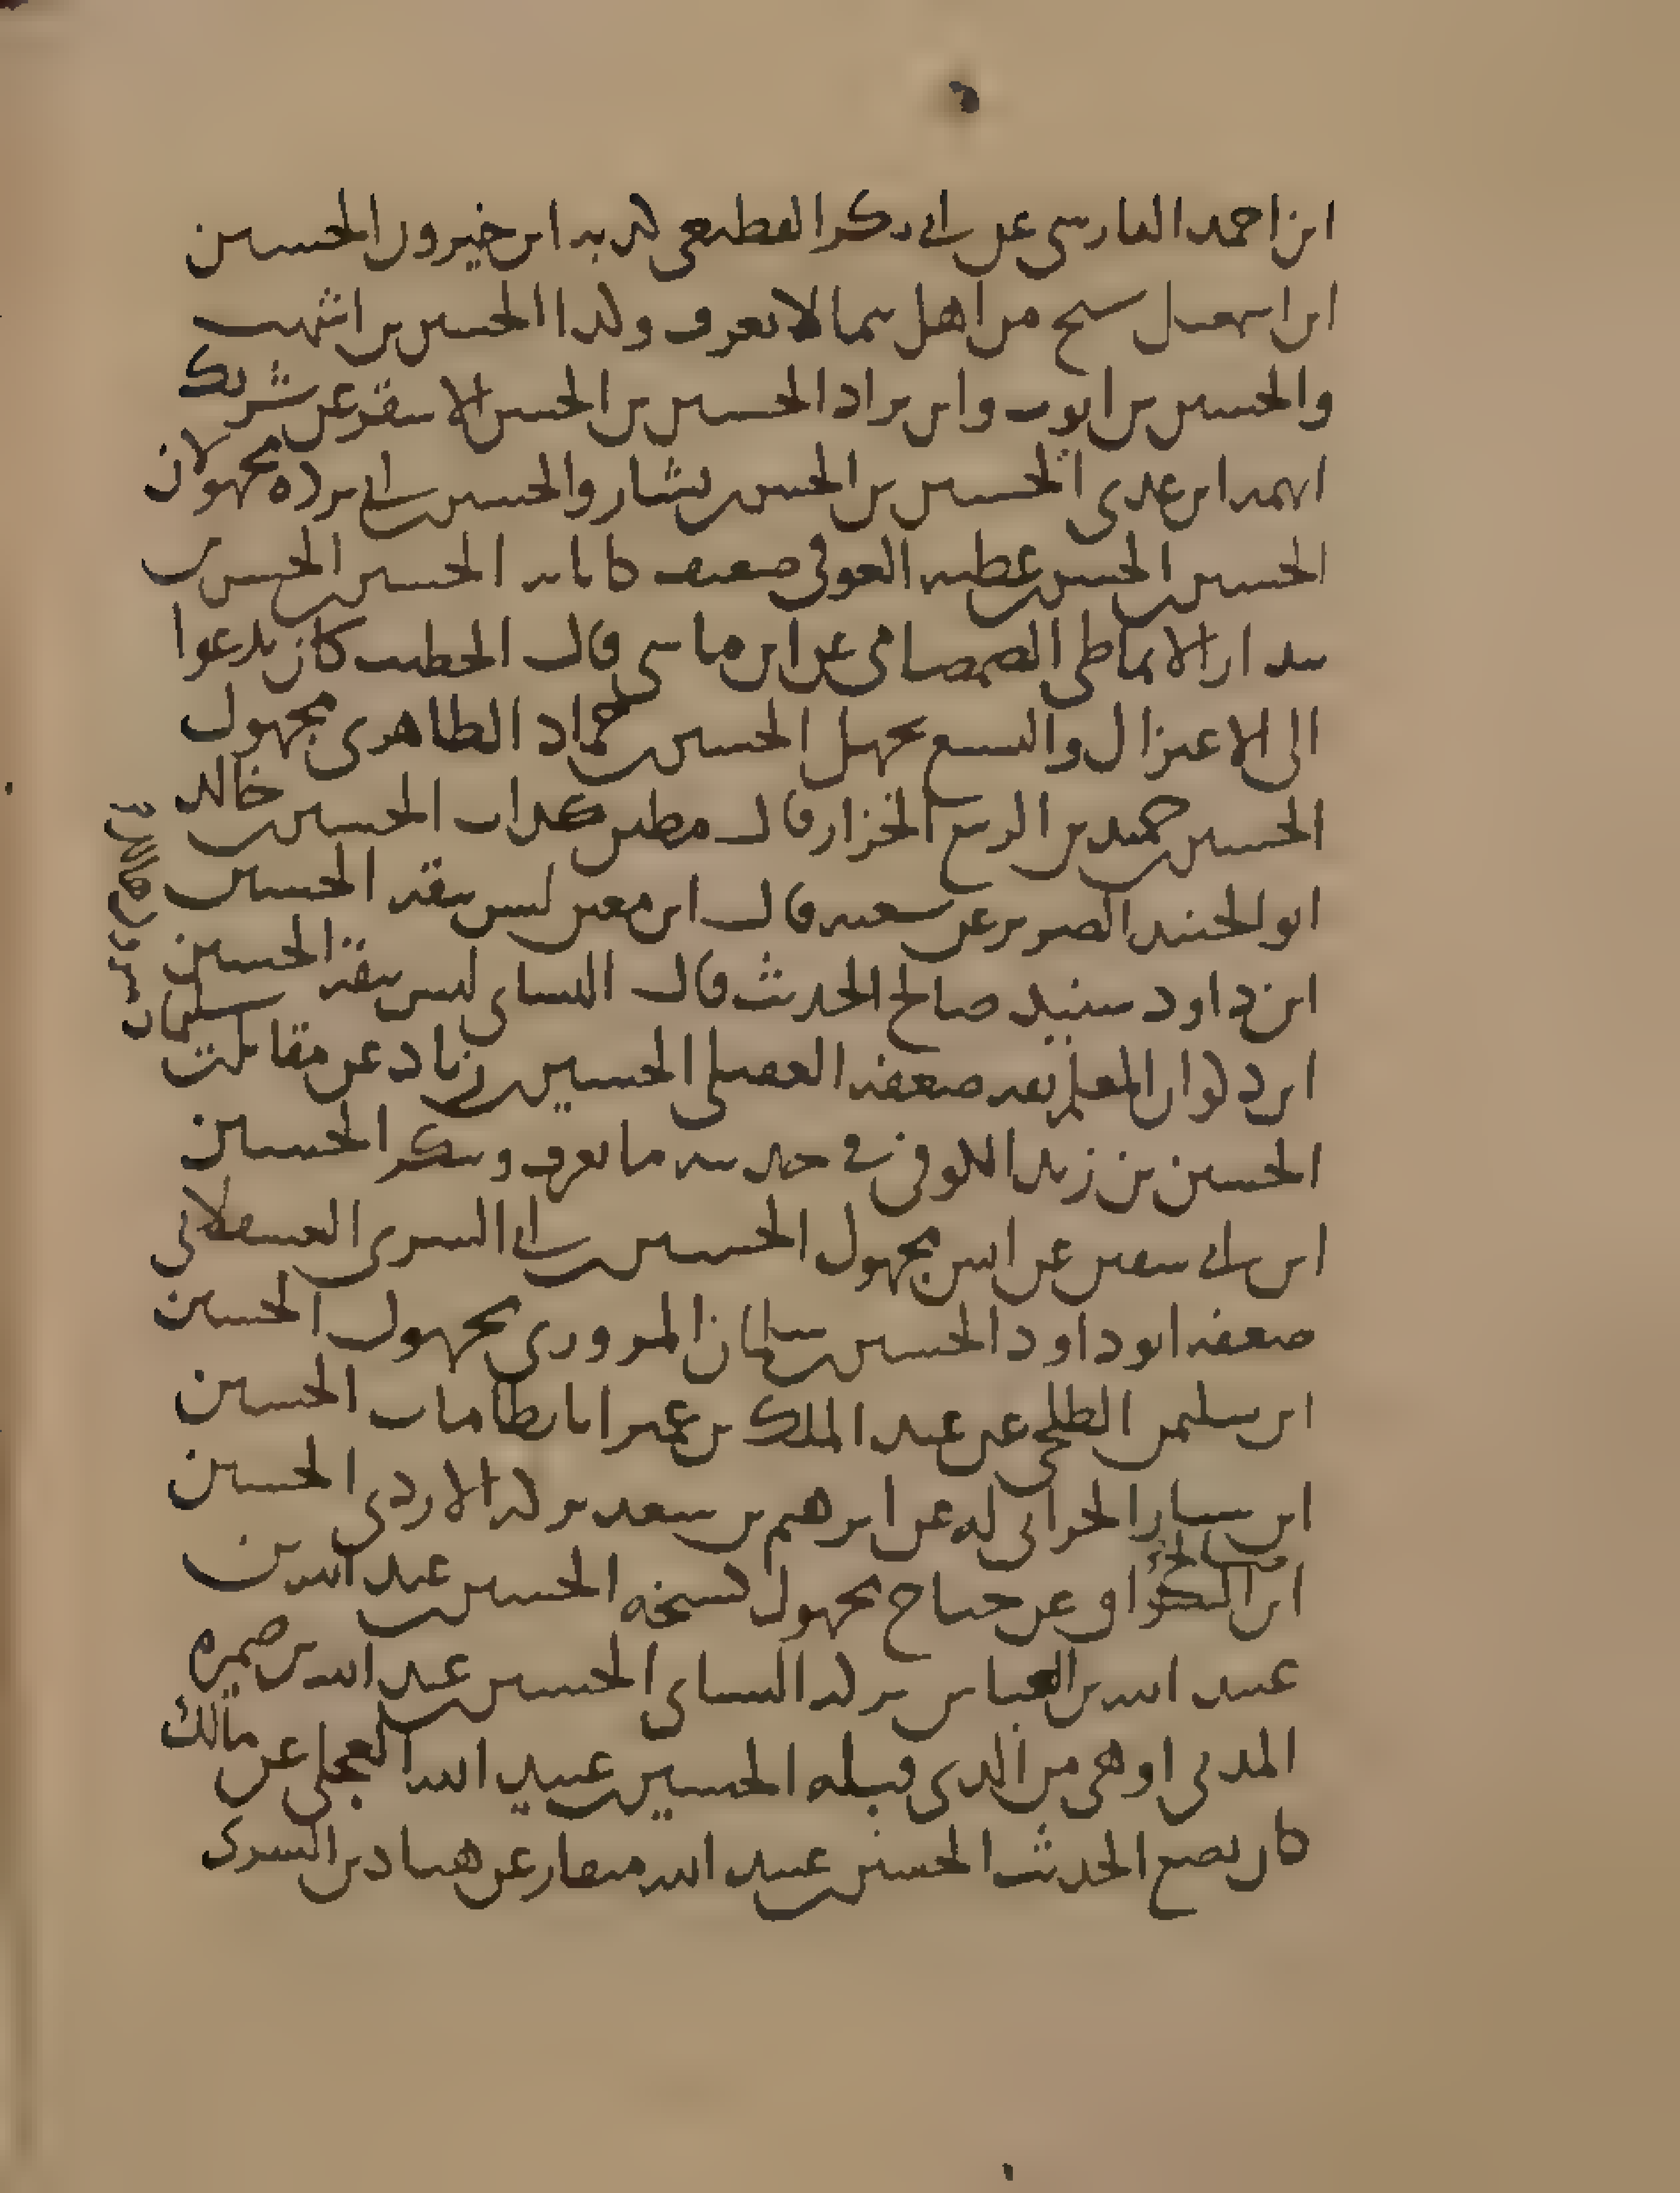 ابن احمد الفارسي عن ابي بكر القطيعي كذبه ابن خيرون الحسين
ابن اسمعيل شيخ من اهل تيما لا يعرف وكذا الحسين بن اشهب
والحسين بن ايوب وابن براد الحسين بن الحسن الاشقر عن شريك
اتهمه ابن عدي الحسين بن الحسن بن بشار والحسين بن ابي برده مجهولان
الحسين بن الحسن بن عطيه العوفي ضعيف كابائه الحسين بن الحسن بن
بندار الانماطي الصمصامي عن ابن ماسي قال الخطيب كان يدعوا
الى الاعتزال والتشيع بجهل الحسين بن حماد الظاهري مجهول
الحسين بن حميد بن الربيع الخزاز قال مطين كذاب الحسين بن خالد
ابو الجنيد الضرير عن شعبه قال ابن معين ليس بثقه الحسين
ابن داود سنيد صالح الحديث قال النساي ليس بثقه الحسين
ابن ذكوان المعلم ثقه ضعفه العقيلي الحسين بن زياد عن مقاتل بن سليمان
الحسين بن زيد الكوفي في حديثه ما يعرف وينكر الحسين
ابن ابي سفين عن انس مجهول الحسين بن ابي السري العسقلاني
ضعفه ابو داود الحسين بن سليمان المروروي مجهول الحسين
ابن سليمن الطلحي عن عبد الملك بن عمير اتا بطامات الحسين
ابن سيار الحراني له عن ابرهيم بن سعد تركه الازدي الحسين
ابن عن جناح مجهول كشيخه الحسين بن عبد الله بن
عبيد الله بن العباس تركه النساي الحسين بن عبد الله بن ضميره
المدني اوهى من الذي قبله الحسين بن عبيد الله العجلي عن مالك
كان يضع الحديث الحسين بن عبيد الله منقار عن هناد بن السري